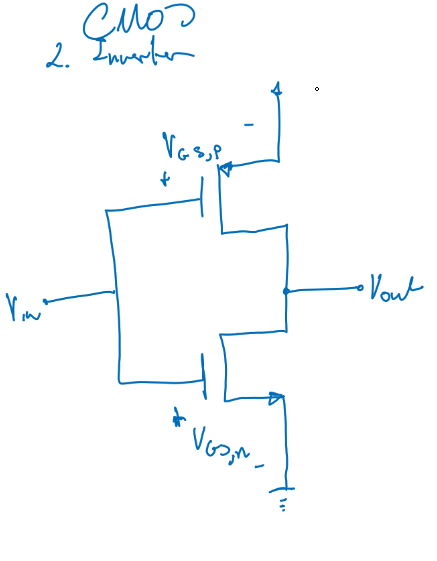 CMOS
2. Inverter
-
VGS,P
+
Vin
Vout
+
VGS,n
-